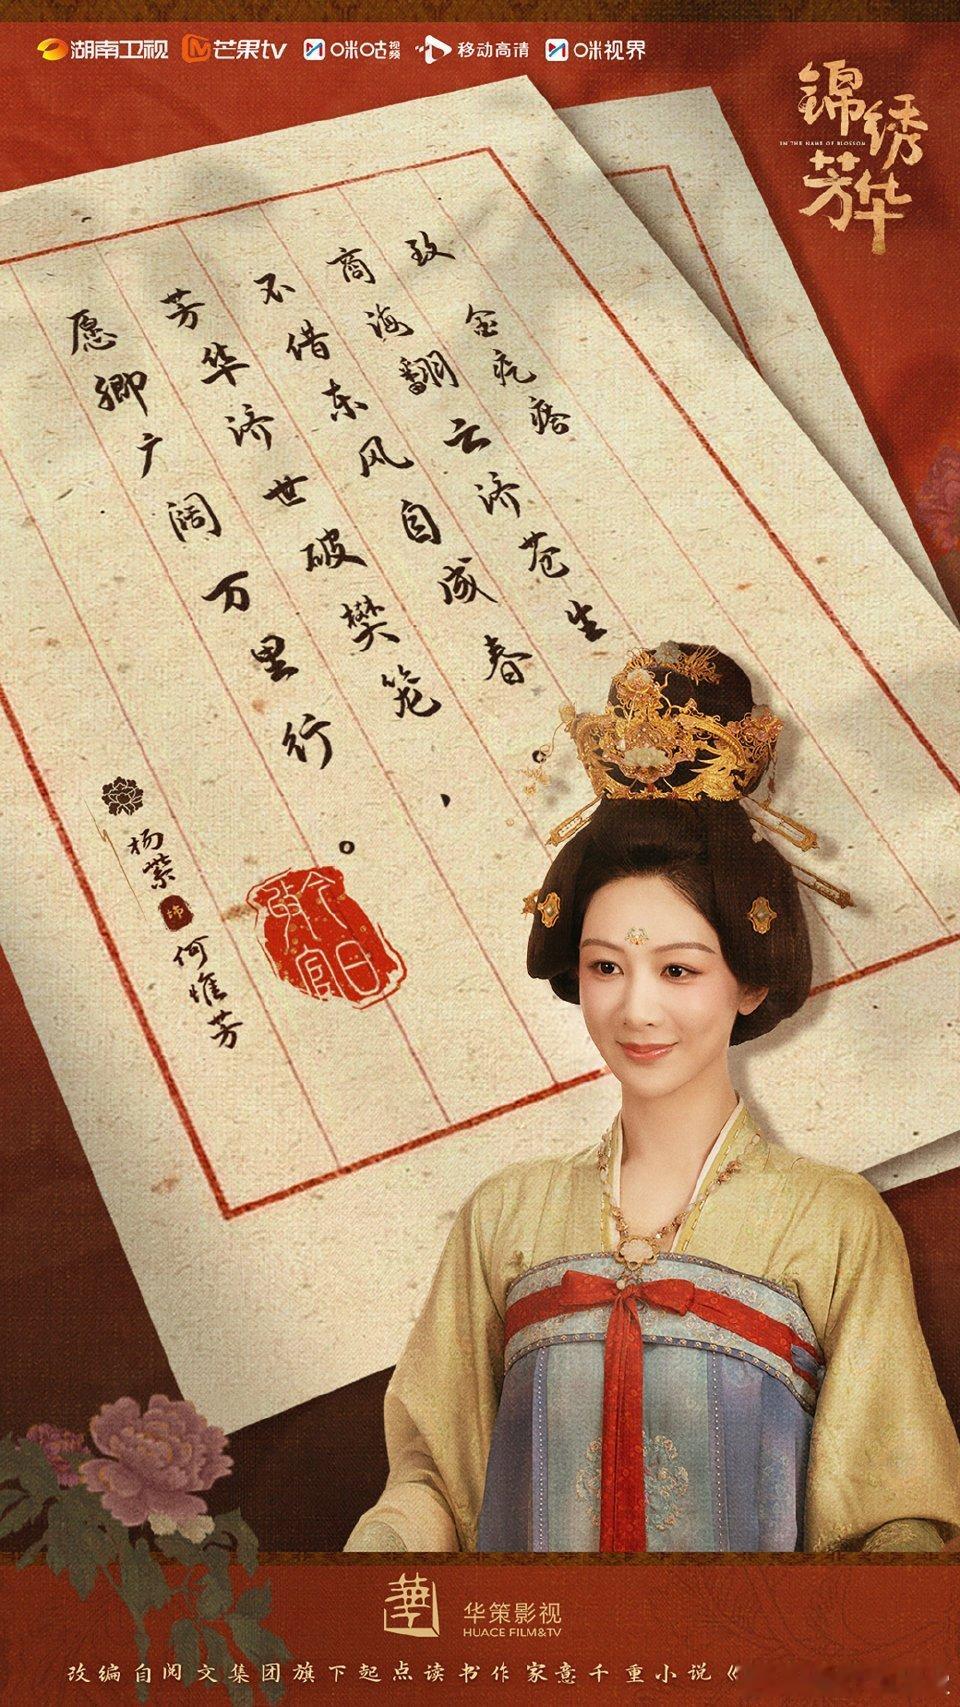 湖南卫视 芒果tv 咪咕视频 移动高清 咪视界
锦绣芳华
IN THE NAME OF BLOSSOM
致金疙瘩
商海翻云济苍生
不借东风自成春。
芳华济世破樊笼,
愿卿广阔万里行。
杨紫 饰 何惟芳
今日
官
華
华策影视
HUACE FILM&TV
改编自阅文集团旗下起点读书作家意千重小说《